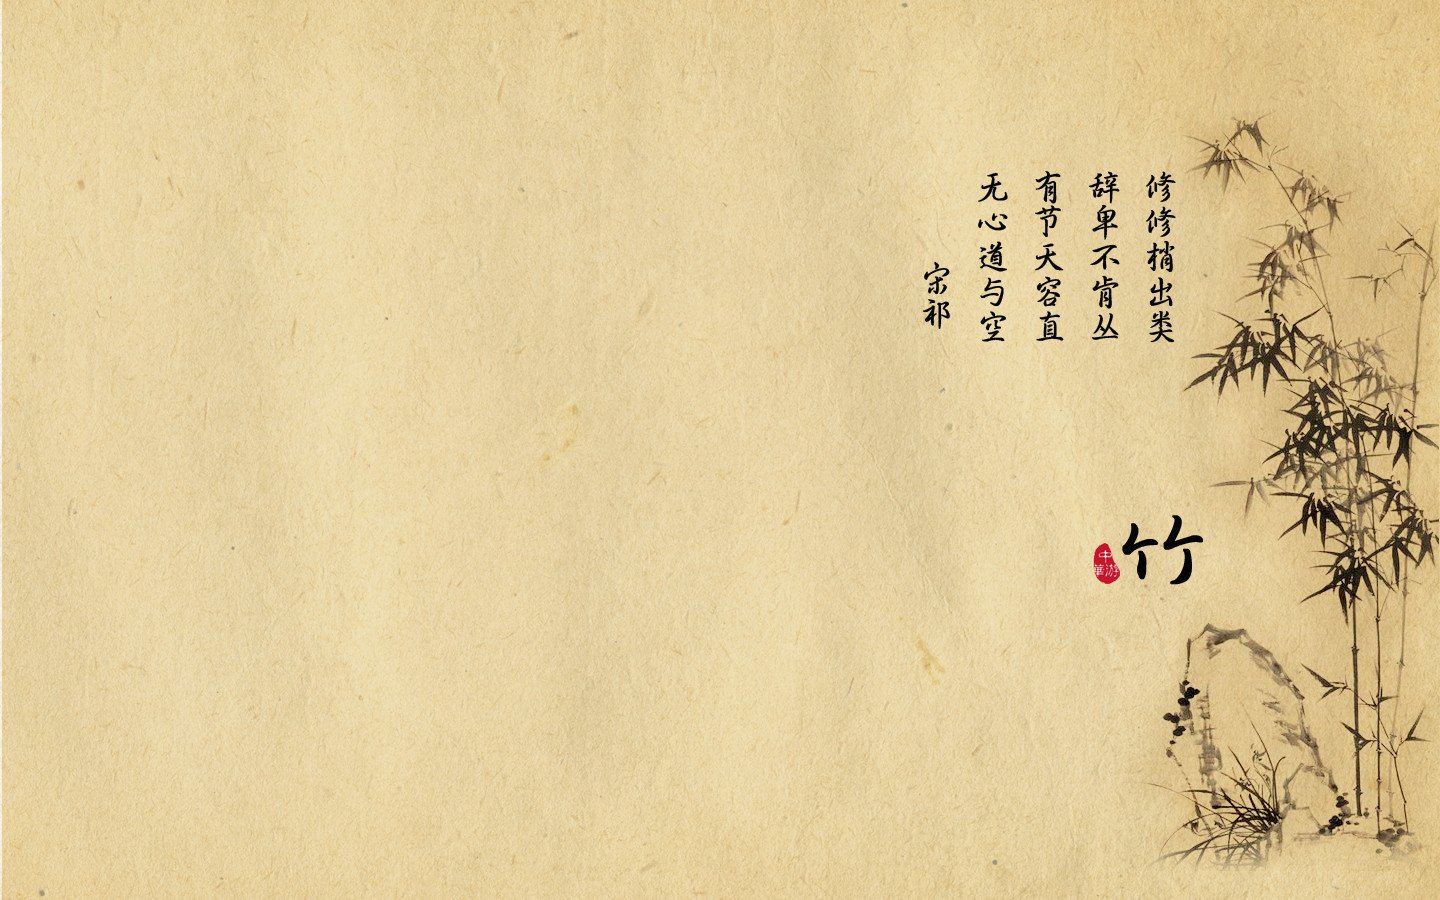 修修梢出类
辞卑不肯丛
有节天容直
无心道与空
宋祁
竹
中华游